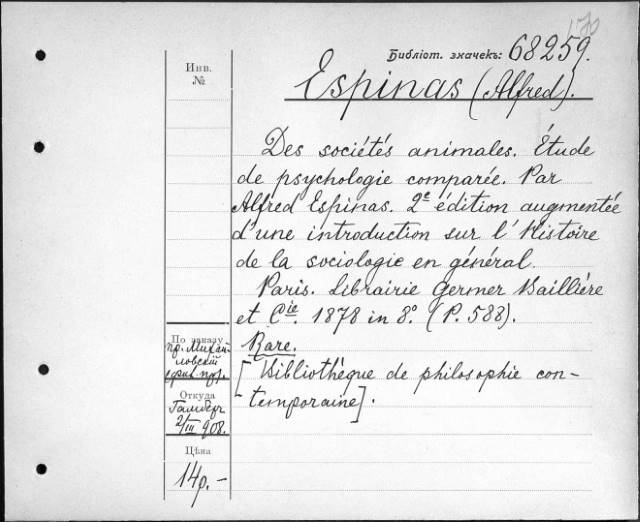 170
Библіот. значекъ: 68259.
Инв.
№
Espinas (Alfred).
Des sociétés animales. Étude
de psychologie comparée. Par
Alfred Espinas. 2e édition augmentée
d'une introduction sur l'Histoire
de la sociologie en général.
Paris. Librairie Germer Baillière
et Cie. 1878 in 8º. (P. 588).
Rare.
[Bibliothèque de philosophie con-
temporaine].
По заказу
пр. Михай-
ловскій
Откуда
2/III 908.
Цѣна
14р.-